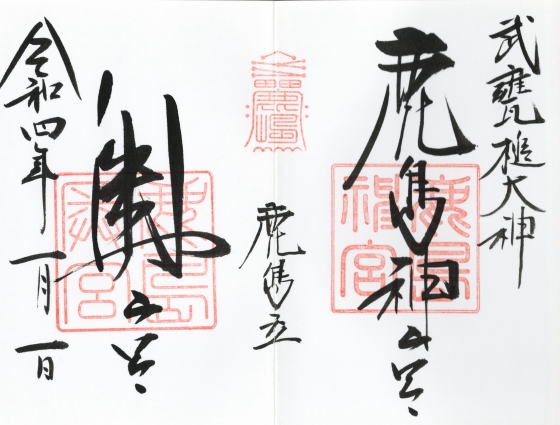 武甕槌大神
鹿島神宮
鹿島神宮
鹿島立
奥宮
令和四年一月一日